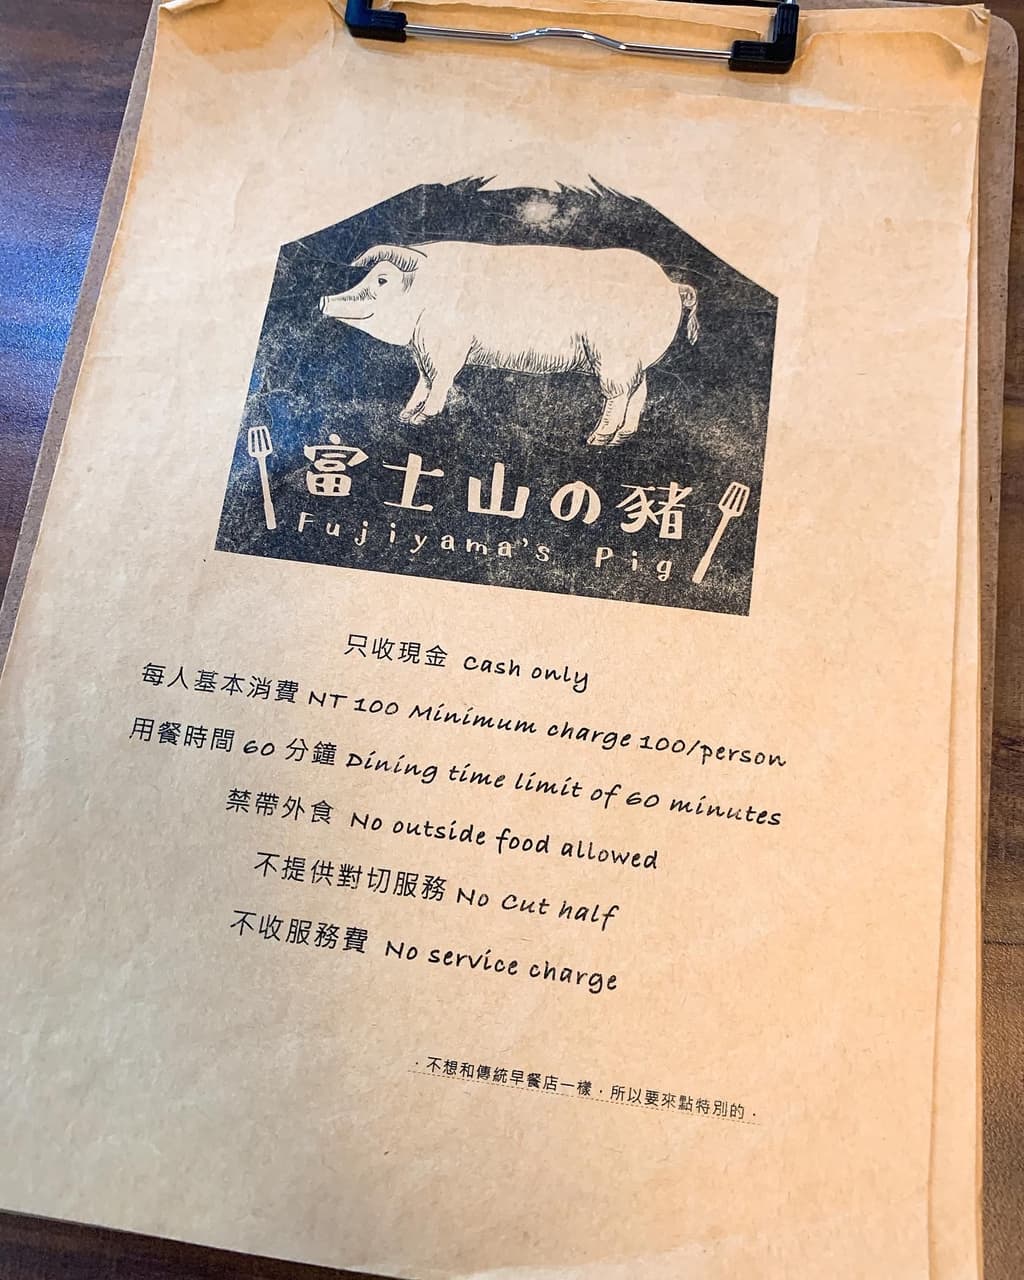 富士山の豬
Fujiyama's Pig
只收現金 cash only
每人基本消費 NT 100 Minimum charge 100/person
用餐時間 60 分鐘 Dining time limit of 60 minutes
禁帶外食 No outside food allowed
不提供對切服務 No Cut half
不收服務費 No service charge
·不想和傳統早餐店一樣·所以要來點特別的·